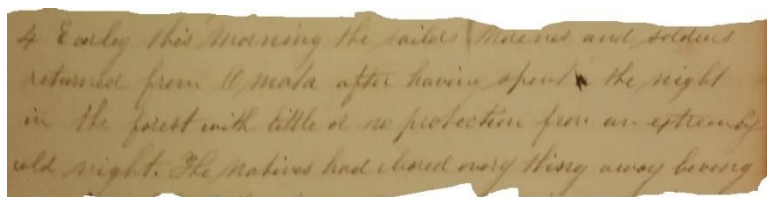 4 Earley this morning the sailds Marenes and solders
returned from Amata after having spent the night
in the forest with little or no protection from an extremely
cold night. The natives had cleared every thing away beving